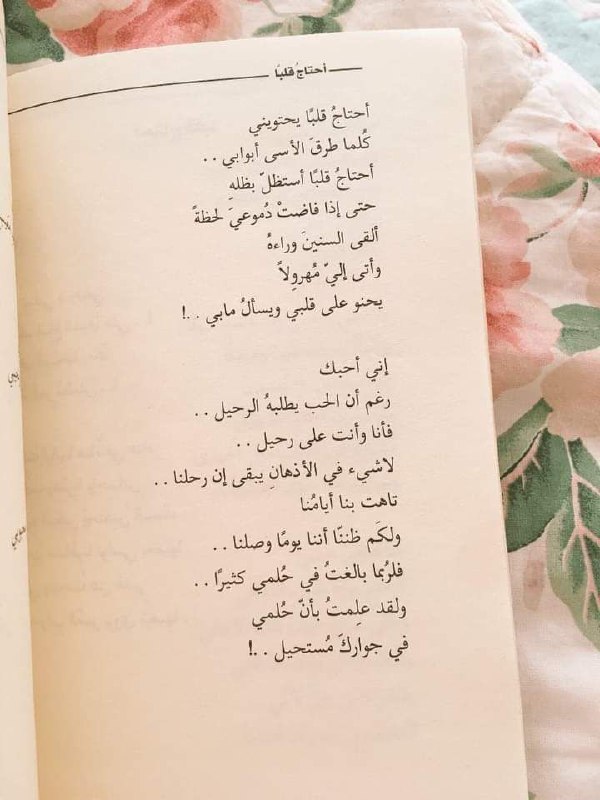 أحتاجُ قلبًا
أحتاجُ قلبًا يحتويني
كُلما طرقَ الأسى أبوابي . .
أحتاجُ قلبًا أستظلّ بظلهِ
حتى إذا فاضتْ دُموعيَ لحظةً
ألقى السنينَ وراءهُ
وأتى إليّ مُهرولاً
يحنو على قلبي ويسألُ مابي . .!
إني أحبك
رغم أن الحب يطلبهُ الرحيل . .
فأنا وأنت على رحيل . .
لاشيء في الأذهانِ يبقى إن رحلنا . .
تاهت بنا أيامُنا
ولكَم ظننّا أننا يومًا وصلنا . .
فلرُبما بالغتُ في حُلمي كثيرًا . .
ولقد علِمتُ بأنّ حُلمي
في جواركَ مُستحيل . .!